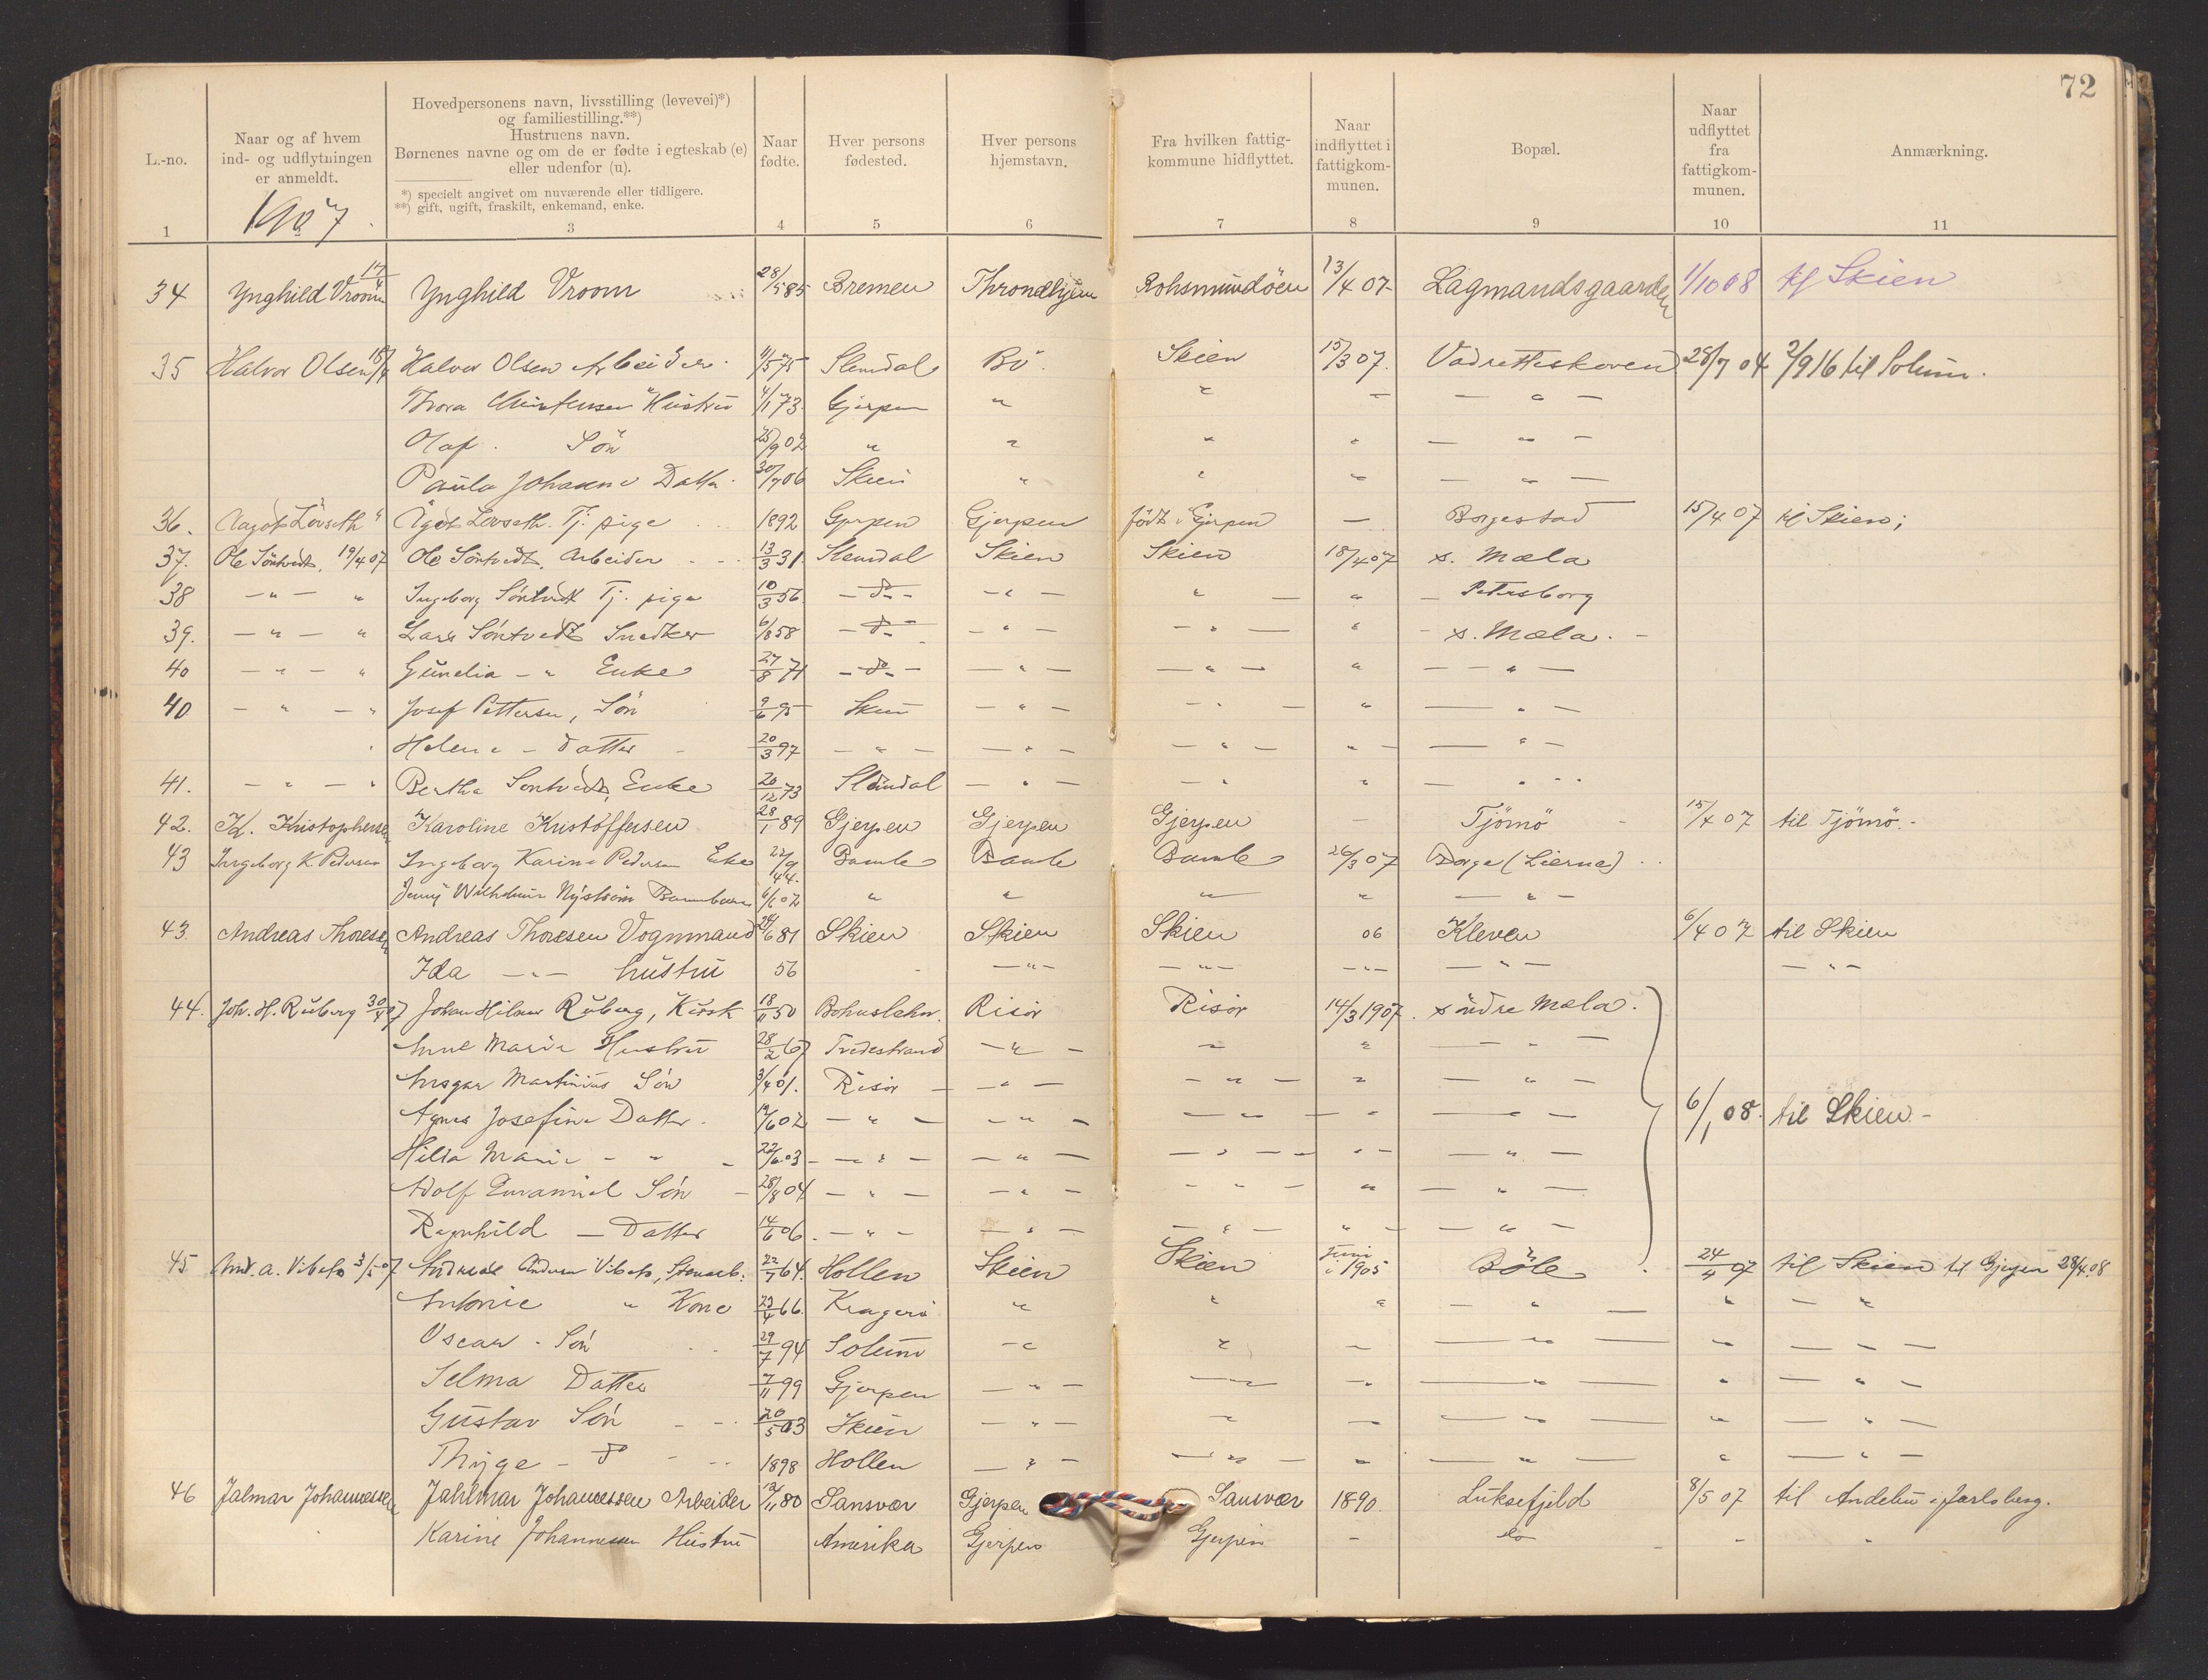 72
L.-no.
Naar og af hvem ind- og udflytningen er anmeldt.
Hovedpersonens navn, livsstilling (levevei)*) og familiestilling.**)
Hustruens navn.
Børnenes navne og om de er fødte i egteskab (e) eller udenfor (u).
*) specielt angivet om nuværende eller tidligere.
**) gift, ugift, fraskilt, enkemand, enke.
Naar fødte.
Hver persons fødested.
Hver persons hjemstavn.
Fra hvilken fattigkommune hidflyttet.
Naar indflyttet i fattigkommunen.
Bopæl.
Naar udflyttet fra fattigkommunen.
Anmærkning.
1907.
1 3 4 5 6 7 8 9 10 11
34 Ynghild Vroom 17/4 Ynghild Vroom 28/5 85 Bremen Throndhjem 13/4 07 Lagmandsgaarden 1/10 08 tf Skien
35 Halvor Olsen 18/4 Halvor Olsen Arbeider 11/5 75 Slemdal Bö Skien 15/3 07. Vadretteskoven 28/7 04 2/9 16 til Solum.
Thora Christensen Hustru 4/11 73. Gjerpen " " - — " —
Olaf. Sön 25/9 02 " " " " — " —
Paula Johanne Datter 30/7 06 Skien " " " — " —
36. Aagot Lövseth " Ågot Lövseth. Tj. pige 1892 Gjerpen Gjerpen født i Gjerpen — Borgestad 15/4 07 tf Skien;
37. Ole Söntvedt, 19/4 07 Ole Söntvedt, Arbeider 13/3 31. Slemdal Skien Skien 18/4 07 s. Mæla
38 — " — " Ingeborg Söntvedt Tj. pige 10/3 56 — do — — " — " — " — Petersborg
39. — " — " Lars Söntvedt Snedker 6/8 58 — do — — " — — " — " - s. Mæla. -
40 — " — " Gunelia — " Enke 27/8 71 — do — — " — — " — " — — " —
40 — " — " Josef Pettersen, Sön 9/6 95 Skien — " — — " — " — " —
" Helene — datter 20/3 97 — " — — " — — " — " — — " —
41. — " — " Bertha Söntvedt, Enke 20/12 73 Slemdal — " — — " " — " - -
42. K. Kristophersen Karoline Kristoffersen 28/1 89 Gjerpen Gjerpen Gjerpen — Tjömö 15/4 07 til Tjömö.-
43 Ingeborg K. Pedersen Ingeborg Karine Pedersen Enke 22/9 44. Bamle Bamle Bamle 26/3 07 Borge (Lierne)
Jenny Wilhelmine Nyström Barnebarn 6/6 02 " " " " — " —
43. Andreas Thoresen Andreas Thoresen Vognmand 24/6 81 Skien Skien Skien 06 Kleven 6/4 07 til Skien
Ida — " — hustru 56 — " — — " — — " — — " — — " —
44. Joh. H. Ruberg 30/4 07 Johan Hilmer Ruberg, Kusk 18/11 50 Bohuslehn. Risör Risör 14/3 1907. söndre Mæla.
Anne Marie Hustru 28/2 67 Tvedestrand — " — " " — " —
Ansgar Martinius Sön 3/4 01. Risör — — " — — " — " — " —
Agnes Josefine Datter. 19/6 02 — " — — " — — " — " — " — 6/1 08. til Skien.-
Hilda Marie — " — 22/6 03 — " — — " — — " — " — " —
Adolf Emanuel Sön — 28/8 04 — " — — " — — " — " — " —
Ragnhild — Datter 14/6 06. — " — — " — — " — " — — " —
45 And. A. Vibeto 3/5 07 Andreas Andersen Vibeto, 22/7 64. Hollen Skien Skien Juni i 1905 Böle 24/4 07 til Skien tf Gjerpen 28/4 08
Antonie " Kone 23/4 66. Kragerö " " " — " — " — "
Oscar - Sön 29/7 94 Solum — " " — — " — " — " —
Selma Datter 7/11 99 Gjerpen — " — — " — " — " — " — " —
Gustav Sön 20/5 03 Skien — " — " — — " — " — " —
Thyge — do 1898 Hollen — " — — " — " — " — " — " —
46 Jalmar Johannessen Jahlmar Johannessen Arbeider 12/11 80 Sansvær Gjerpen Sansvær 1890. Luksefjeld 8/5 07 til Andebu i Jarlsberg.
Karine Johannessen Hustru Amerika Gjerpen Gjerpen — do - "